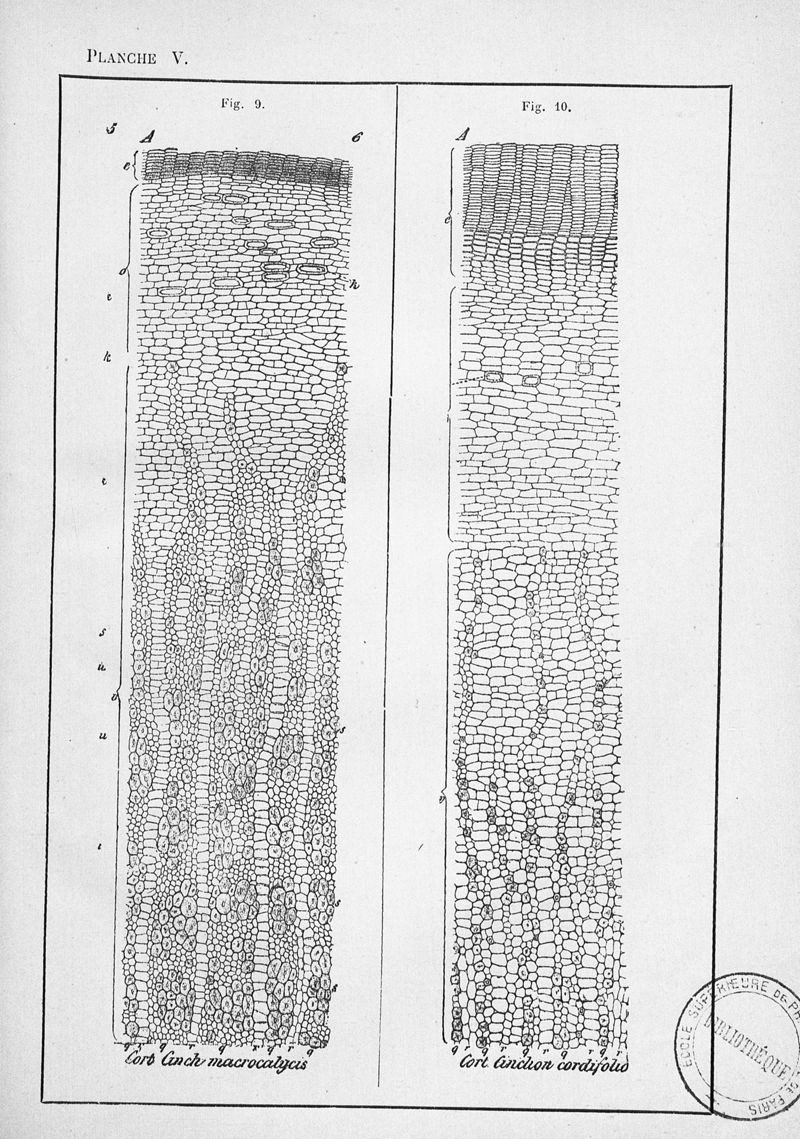 PLANCHE V.
Fig. 9.
Fig. 10.
5 A 6
A
e
d
h
k
s
u
v
s
s
s
e
v
q r q r q r q
q r q r q r q r q r
Cort Cinch macrocalycis
Cort Cinchon cordifolio
ECOLE SUPÉRIEURE DE PH
BIBLIOTHÈQUE
DE PARIS